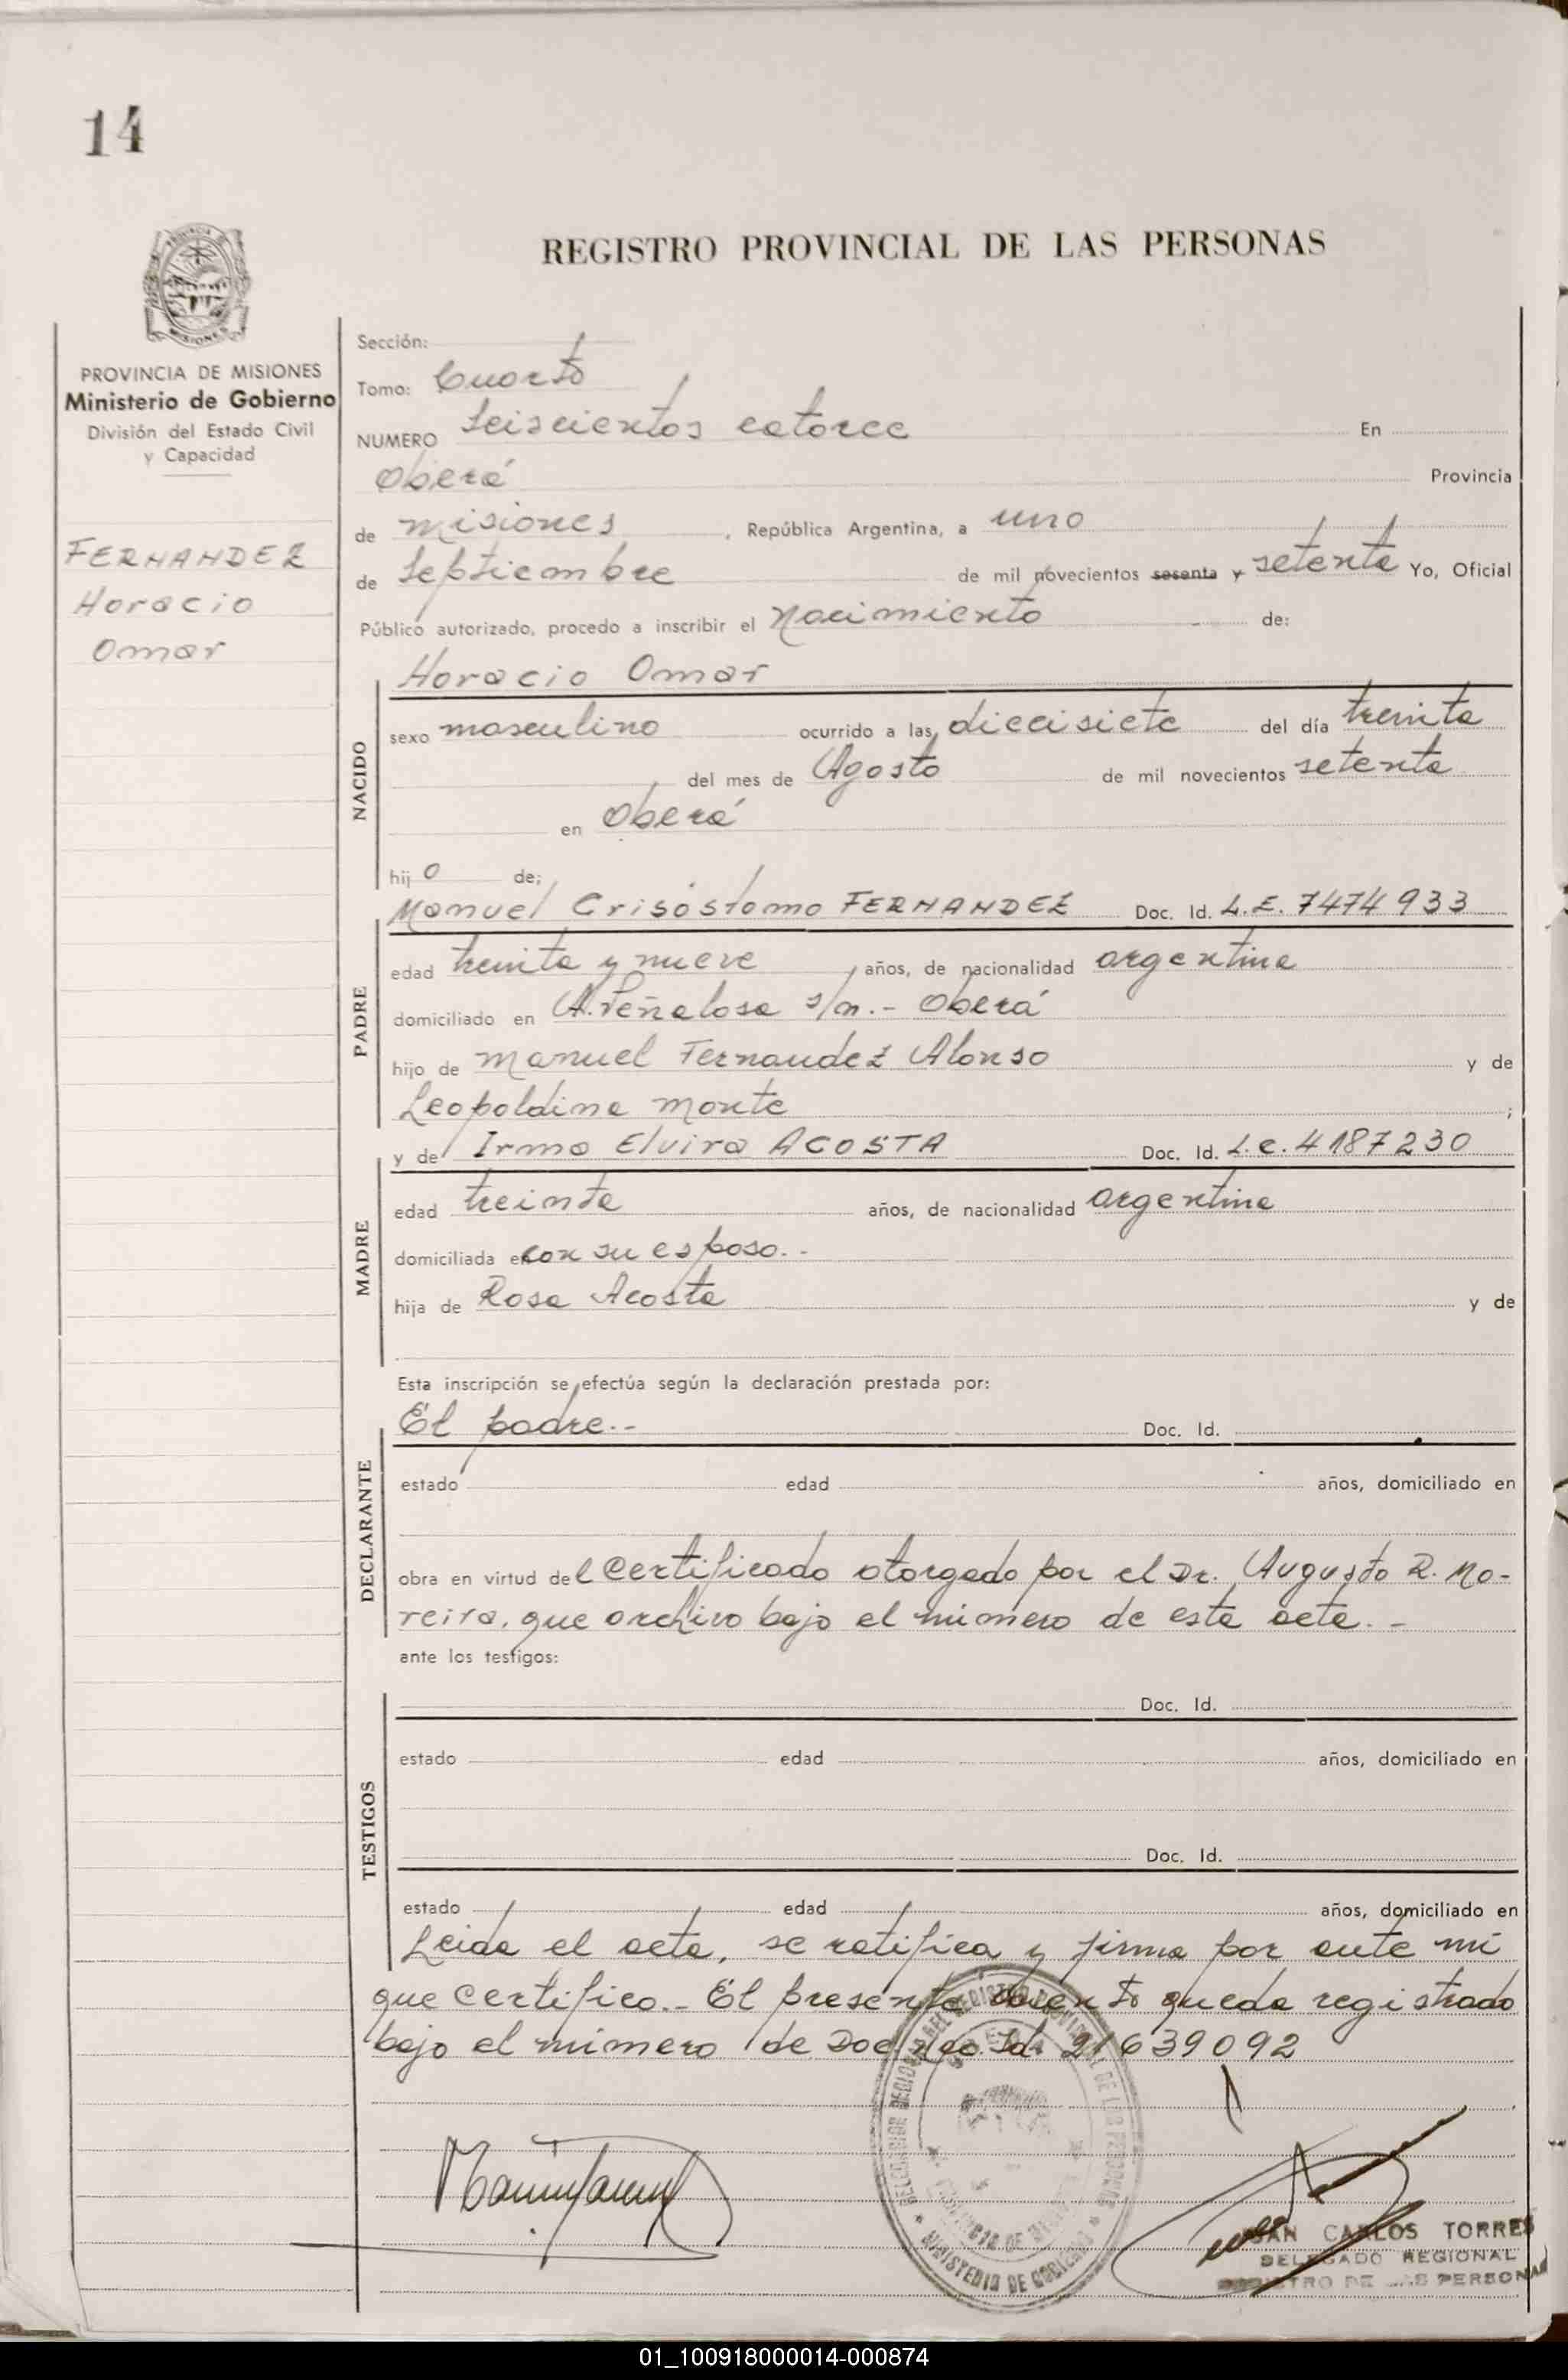 14
REGISTRO PROVINCIAL DE LAS PERSONAS
MISIONES
PROVINCIA DE MISIONES
Ministerio de Gobierno
División del Estado Civil
y Capacidad
FERNANDEZ
Horacio
Omar
Sección:
Tomo: Cuarto
NUMERO Seiscientos catorce En
Oberá Provincia
de misiones, República Argentina, a uno
de Septiembre de mil novecientos sesenta y setenta Yo, Oficial
Público autorizado, procedo a inscribir el Nacimiento de:
Horacio Omar
NACIDO
sexo masculino ocurrido a las diecisiete del día treinta
del mes de Agosto de mil novecientos setenta
en Oberá
hijo de;
Manuel Crisóstomo FERNANDEZ Doc. Id. L.E. 7474933
PADRE
edad treinta y nueve años, de nacionalidad argentina
domiciliado en A. Peñalosa s/n.- Oberá
hijo de Manuel Fernandez Alonso y de
Leopoldina Monte ;
y de Irma Elvira ACOSTA Doc. Id. L.C. 4187230
MADRE
edad treinta años, de nacionalidad argentina
domiciliada en con su esposo.-
hija de Rosa Acosta y de
Esta inscripción se efectúa según la declaración prestada por:
El padre.- Doc. Id.
DECLARANTE
estado edad años, domiciliado en
obra en virtud del Certificado otorgado por el Dr. Augusto R. Mo-
reira, que archivo bajo el número de esta acta.-
ante los testigos:
Doc. Id.
TESTIGOS
estado edad años, domiciliado en
Doc. Id.
estado edad años, domiciliado en
Leida el acta, se ratifica y firma por ante mi
que certifico.- El presente queda registrado
bajo el número de Doc. Nac. Id. 21639092
MINISTERIO DE GOBIERNO
JUAN CARLOS TORRES
DELEGADO REGIONAL
REGISTRO DE LAS PERSONAS
01_100918000014-000874